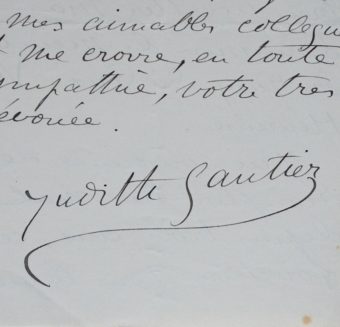 mes aimables collègu
me croire, en toute
mpathie, votre très
évouée.
Judith Gautier